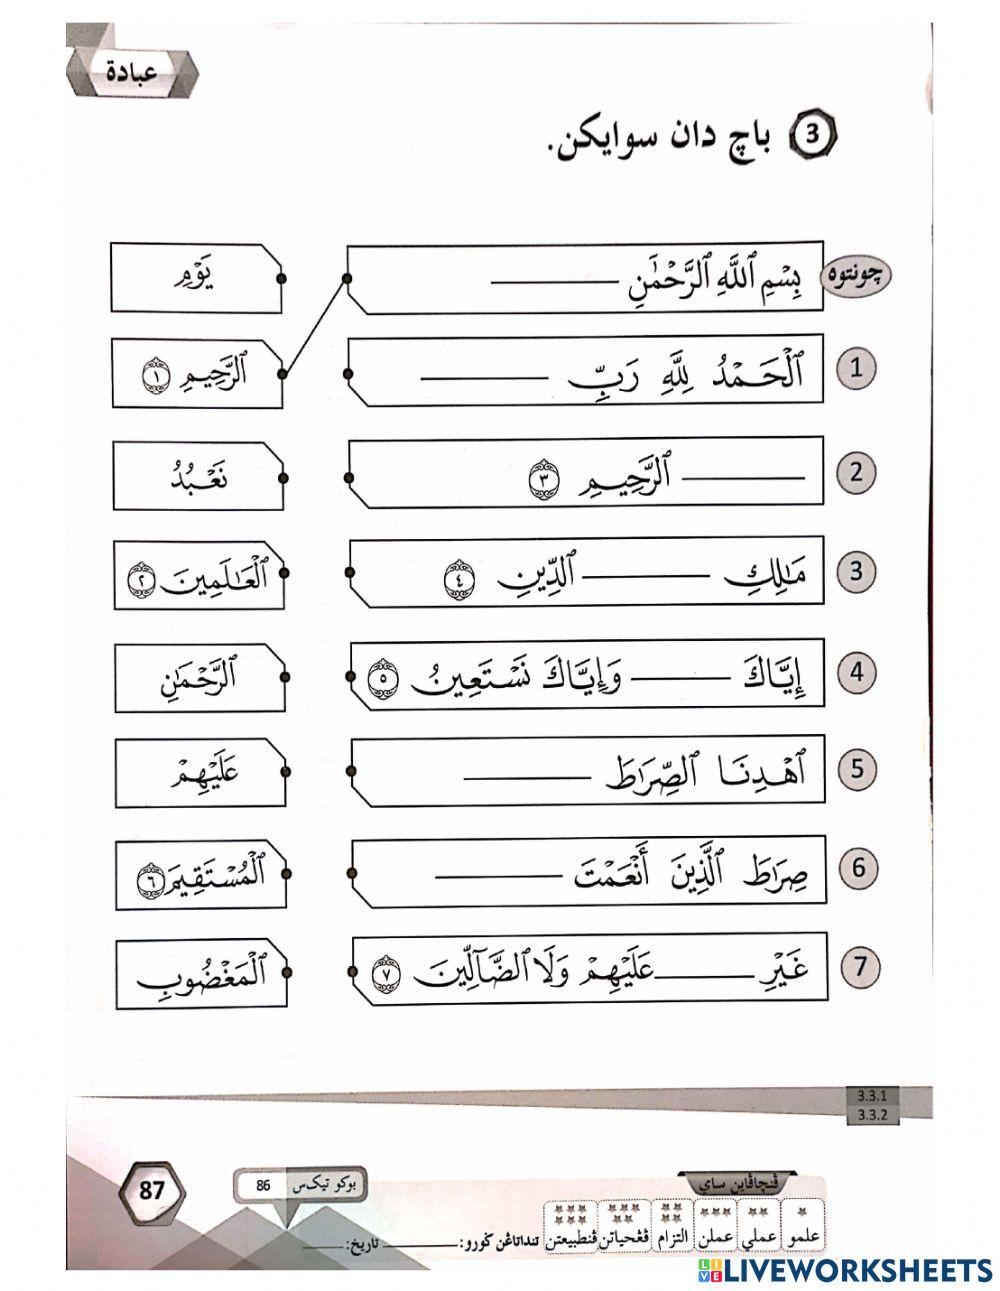 عبادة
3 باچ دان سوايكن.
چونتوه بِسْمِ ٱللَّهِ ٱلرَّحْمَٰنِ ______ يَوْمِ
1 ٱلْحَمْدُ لِلَّهِ رَبِّ ______ ٱلرَّحِيمِ ١
2 ______ ٱلرَّحِيمِ ٣ نَعْبُدُ
3 مَٰلِكِ ______ ٱلدِّينِ ٤ ٱلْعَٰلَمِينَ ٢
4 إِيَّاكَ ______ وَإِيَّاكَ نَسْتَعِينُ ٥ ٱلرَّحْمَٰنِ
5 ٱهْدِنَا ٱلصِّرَٰطَ ______ عَلَيْهِمْ
6 صِرَٰطَ ٱلَّذِينَ أَنْعَمْتَ ______ ٱلْمُسْتَقِيمَ ٦
7 غَيْرِ ______ عَلَيْهِمْ وَلَا ٱلضَّآلِّينَ ٧ ٱلْمَغْضُوبِ
3.3.1
3.3.2
ڤنچاڤاين ساي
بوكو تيك‌س 86
87
علمو عملي عملن التزام ڤڠحياتن ڤنطبيعتن
تنداتاڠن ݢورو: ______ تاريخ: ______
LIVEWORKSHEETS